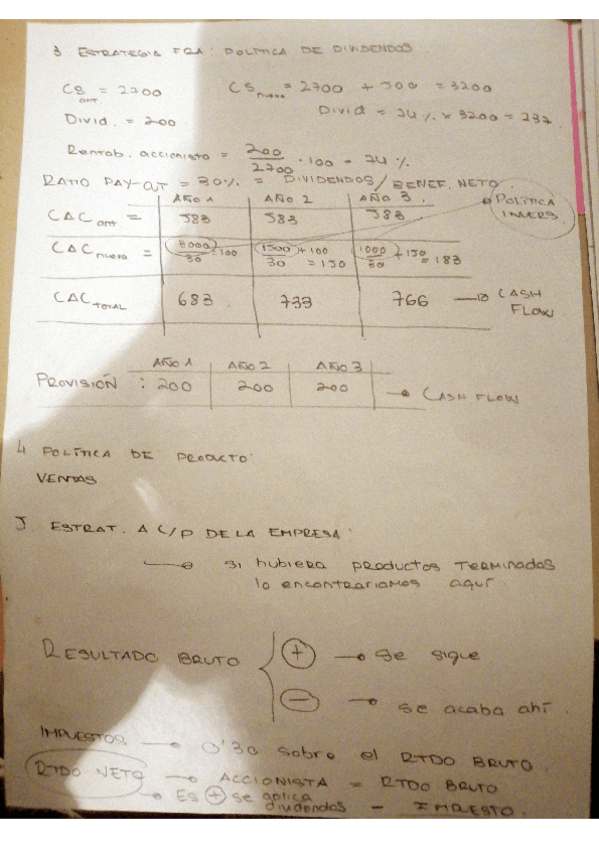 3. ESTRATEGIA FRA: POLÍTICA DE DIVIDENDOS.
CS ANT = 2700 CS nueva = 2700 + 500 = 3200
Divid. = 200 Divid = 7'4 % x 3200 = 237.
Rentab. accionista = 200/2700 · 100 = 7'4 %.
RATIO PAY-OUT = 30% = DIVIDENDOS/BENEF. NETO.
AÑO 1 AÑO 2 AÑO 3 POLÍTICA INVERS.
CAC ant = 583 583 583
CAC nueva = 3000/30 = 100 1500/30 + 100 = 150 1000/30 + 150 = 183
CAC TOTAL 683 733 766 → CASH FLOW
AÑO 1 AÑO 2 AÑO 3
PROVISIÓN : 200 200 200 → CASH FLOW
4 POLÍTICA DE PRODUCTO:
VENTAS
5. ESTRAT. A C/P DE LA EMPRESA:
→ si hubiera productos TERMINADOS
lo encontraríamos aquí.
RESULTADO BRUTO { + → se sigue
− → se acaba ahí.
IMPUESTOS → 0'30 sobre el RTDO BRUTO
RTDO NETO → ACCIONISTA = RTDO BRUTO
→ Es + se aplica dividendos − IMPUESTO.